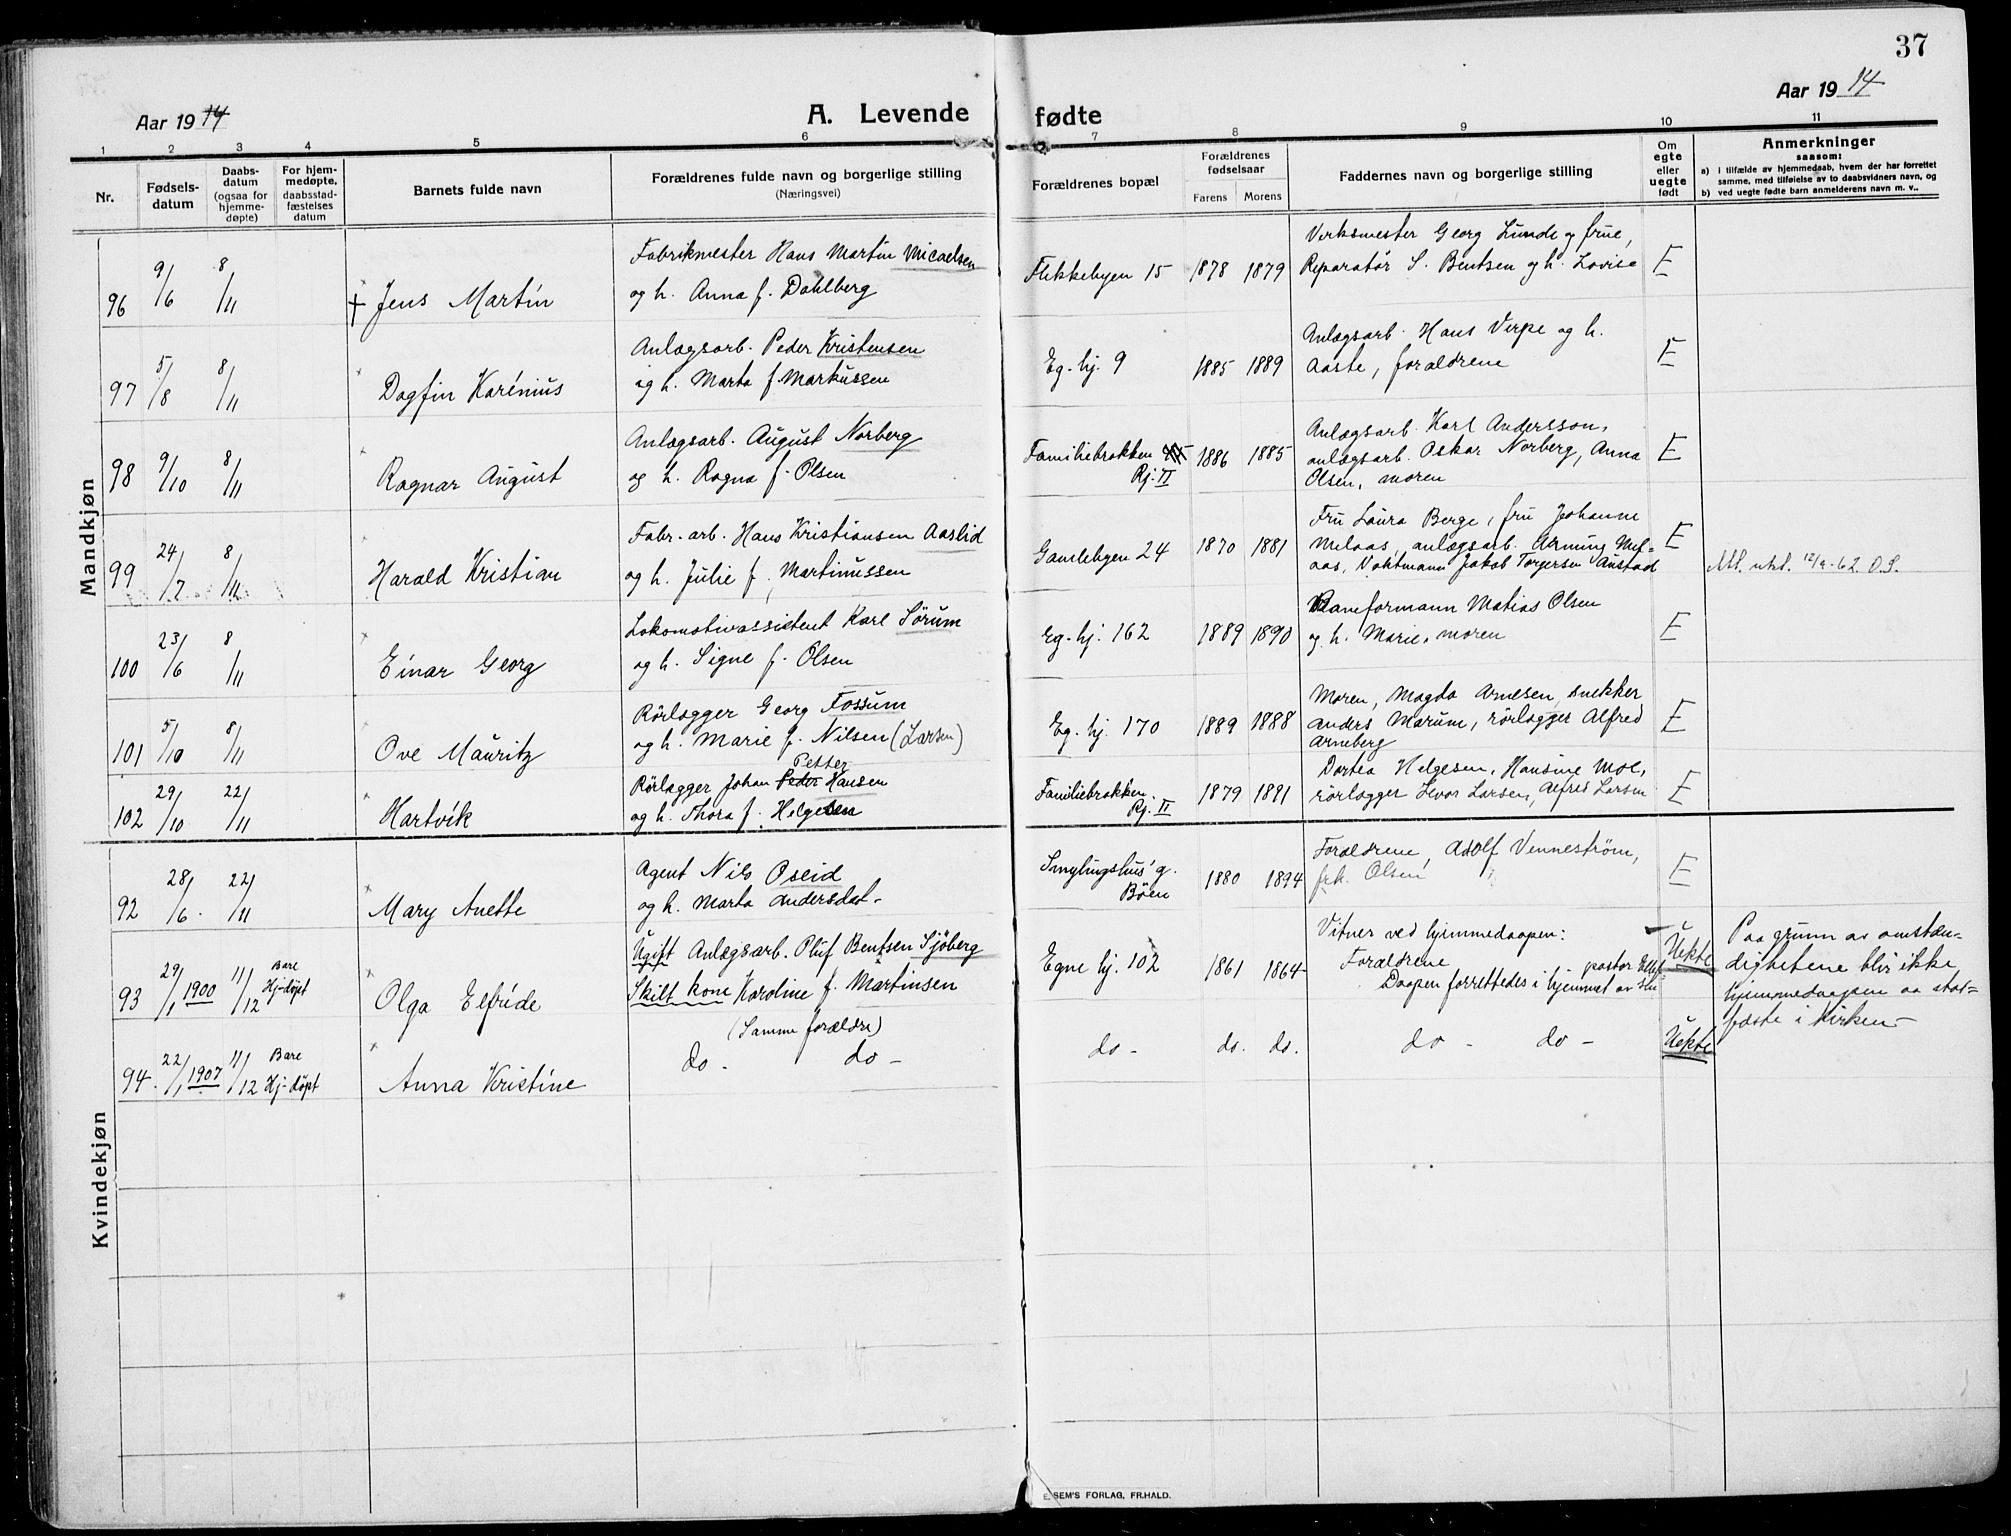 37
Aar 1914
A. Levende fødte
Aar 1914
1 2 3 4 5 6 7 8 9 10 11
Nr.
Fødsels-
datum
Daabs-
datum
(ogsaa for
hjemme-
døpte)
For hjem-
medøpte,
daabsstad-
fæstelses
datum
Barnets fulde navn
Forældrenes fulde navn og borgerlige stilling
(Næringsvei)
Forældrenes bopæl
Forældrenes
fødselsaar
Farens Morens
Faddernes navn og borgerlige stilling
Om
egte
eller
uegte
født
Anmerkninger
saasom:
a) i tilfælde av hjemmedaab, hvem der har forrettet
samme, med tilføielse av to daabsvidners navn, og
b) ved uegte fødte barn anmelderens navn m. v..
Mandkjøn
96 9/6 8/11 † Jens Martin
Fabrikmester Hans Martin Micaelsen
og h. Anna f. Dahlberg
Flekkebyen 15 1878 1879
Verksmester Georg Lunde og frue,
Reparatør S. Bentsen og h. Lovise
E
97 5/8 8/11 Dagfin Karénius
Anlægsarb. Peder Kristensen
og h. Marta f. Markussen
Eg. hj. 9 1885 1889
Anlægsarb. Hans Verpe og h.
Aaste, forældrene
E
98 9/10 8/11 Ragnar August
Anlægsarb. August Norberg
og h. Ragna f. Olsen
Familiebrakken
Rj. II
1886 1885
Anlægsarb. Karl Andersson,
anlægsarb. Oskar Norberg, Anna
Olsen, moren
E
99 24/7 8/11 Harald Kristian
Fabr. arb. Hans Kristiansen Aaslid
og h. Julie f. Martinussen
Gamlebyen 24 1870 1881
Fru Laura Berge, fru Johanne
Melaas, anlægsarb. Mel=
aas, Jakob Torgersen Austad
E
utst. 12/9-62 O.S.
100 23/6 8/11 Einar Georg
Lokomotivassistent Karl Sørum
og h. Signe f. Olsen
Eg. hj. 162 1889 1890
Baneformann Matias Olsen
og h. Marie, moren
E
101 5/10 8/11 Ove Mauritz
Rørlægger Georg Fossum
og h. Marie f. Nilsen (Larsen)
Eg. hj. 170 1889 1888
Moren, Magda Arnesen, snekker
Anders Marum, rørlægger Alfred
Arneberg
E
102 29/10 22/11 Hartvík
Petter
Rørlægger Johan Peder Hansen
og h. Thora f. Helgesen
Familiebrakken.
Rj. II
1879 1881
Dortea Helgesen, Hansine Moe,
rørlægger Hvor Larsen, Alfred Larsen
E
Kvindekjøn
92 28/6. 22/11 Mary Anette
Agent Nils Oseid
og h. Marta Andersdat.
Smylingshus' g.
Bøen
1880 1894
Forældrene, Adolf Venneström,
frk. Olsen
E
93 29/1 1900 11/12 Bare
Hj-døpt
Olga Elfride
Ugift Anlægsarb. Oluf Bentsen Sjöberg
Skilt kone Karoline f. Martinsen
(Samme forældre)
Egne hj. 102 1861 1864
Vitner ved hjemmedaapen:
Forældrene
Daapen forrettedes i hjemmet av pastor
Uekte
Paa grunn av omstæn=
dighetene blir ikke
hjemmedaapen aa stad=
fæste i kirken
94. 22/1 1907 11/12 Bare
Hj-døpt
Anna Kristine
do. do -
do - do. do. do - do -
Uekte
E. SEM'S FORLAG, FR.HALD.